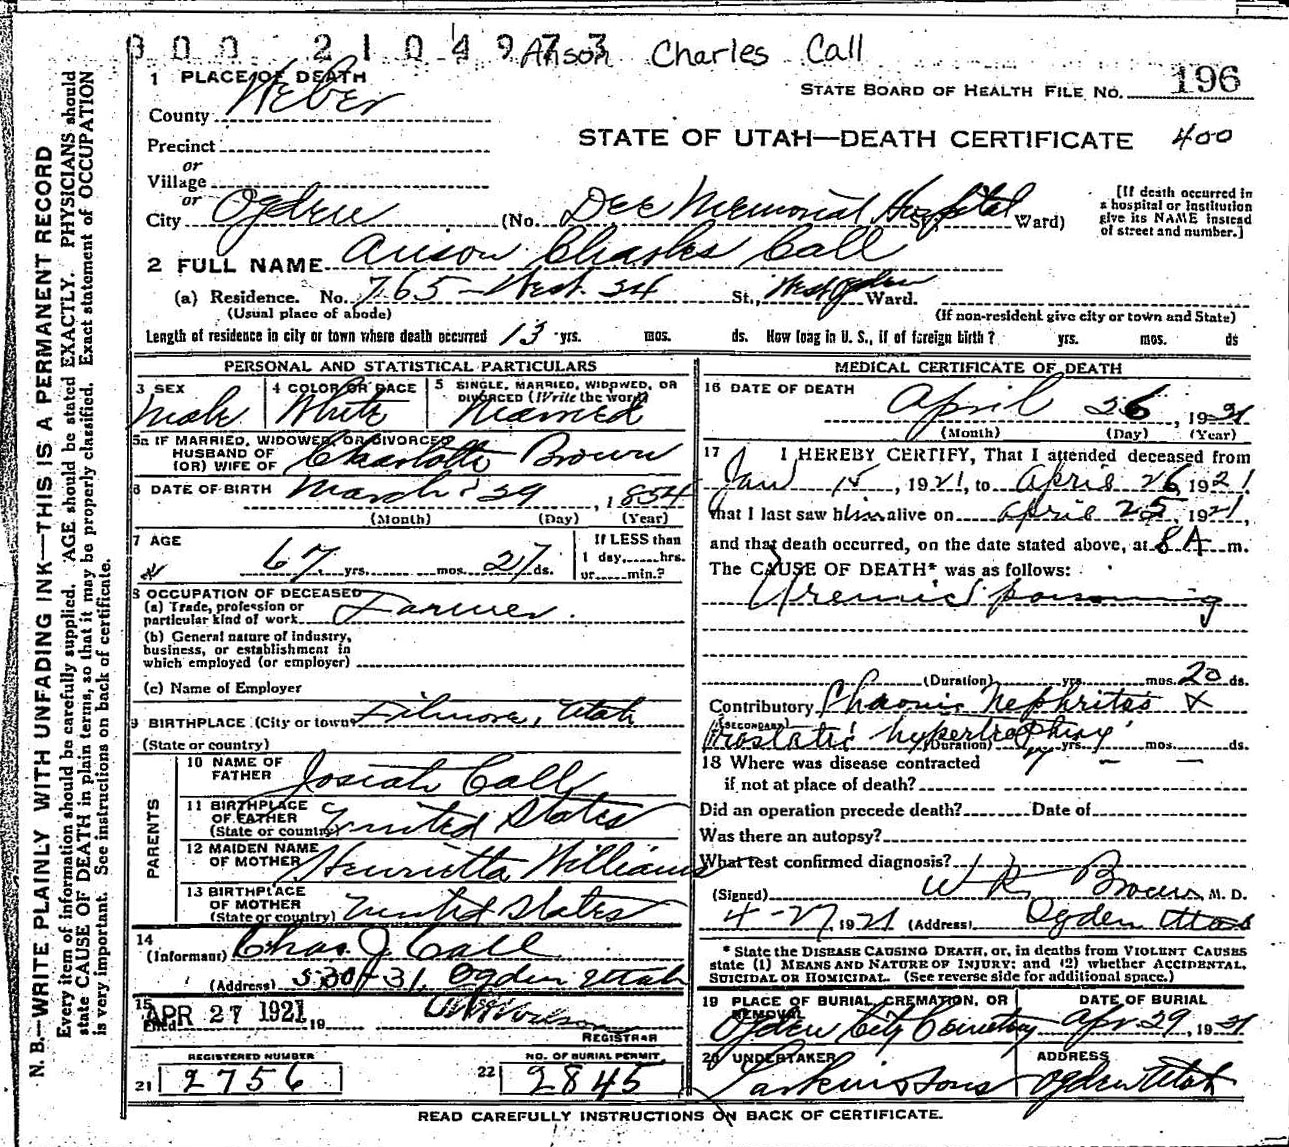 300 2104973 Anson Charles Call
1 PLACE OF DEATH
County Weber
STATE BOARD OF HEALTH FILE NO. 196
Precinct
STATE OF UTAH—DEATH CERTIFICATE 400
or
Village
or
City Ogden (No. Dee Memorial Hospital St., Ward)
[If death occurred in
a hospital or institution
give its NAME instead
of street and number.]
2 FULL NAME Anson Charles Call
(a) Residence. No. 765 - West. 24 St., West Ogden Ward.
(Usual place of abode) (If non-resident give city or town and State)
Length of residence in city or town where death occurred 13 yrs. mos. ds. How long in U. S., if of foreign birth? yrs. mos. ds
PERSONAL AND STATISTICAL PARTICULARS
3 SEX Male
4 COLOR OR RACE White
5 SINGLE, MARRIED, WIDOWED, OR
DIVORCED (Write the word) Married
5a IF MARRIED, WIDOWED, OR DIVORCED
HUSBAND OF
(OR) WIFE OF Charlotte Brown
6 DATE OF BIRTH March 29, 1854
(Month) (Day) (Year)
7 AGE 67 yrs. mos. 27 ds.
If LESS than
1 day, hrs.
or min.?
8 OCCUPATION OF DECEASED
(a) Trade, profession or
particular kind of work Farmer.
(b) General nature of industry,
business, or establishment in
which employed (or employer)
(c) Name of Employer
9 BIRTHPLACE (City or town) Filmore, Utah
(State or country)
PARENTS
10 NAME OF
FATHER Josiah Call
11 BIRTHPLACE
OF FATHER
(State or country) United States
12 MAIDEN NAME
OF MOTHER Henrietta Williams
13 BIRTHPLACE
OF MOTHER
(State or country) United States
14
(Informant) Chas J. Call
(Address) 530-31, Ogden Utah
15
Filed APR 27 1921 19
REGISTRAR
REGISTERED NUMBER
21 2756
NO. OF BURIAL PERMIT
22 2845
MEDICAL CERTIFICATE OF DEATH
16 DATE OF DEATH
April 26, 1921
(Month) (Day) (Year)
17 I HEREBY CERTIFY, That I attended deceased from
Jan 15, 1921, to April 26 1921
that I last saw him alive on April 25, 1921,
and that death occurred, on the date stated above, at 8 A m.
The CAUSE OF DEATH* was as follows:
Uremic poisoning
(Duration) yrs. mos. 20 ds.
Contributory Chronic Nephritas &
(SECONDARY)
Prostatic hypertrophy
(Duration) yrs. mos. ds.
18 Where was disease contracted
if not at place of death?
Did an operation precede death? Date of
Was there an autopsy?
What test confirmed diagnosis?
(Signed) W R Brown M. D.
4-27, 1921 (Address) Ogden Utah
* State the DISEASE CAUSING DEATH, or, in deaths from VIOLENT CAUSES
state (1) MEANS AND NATURE OF INJURY; and (2) whether ACCIDENTAL,
SUICIDAL OR HOMICIDAL. (See reverse side for additional space.)
19 PLACE OF BURIAL, CREMATION, OR
REMOVAL
Ogden City Cemetery
DATE OF BURIAL
Apr. 29, 1921
20 UNDERTAKER
Larkin & Sons
ADDRESS
Ogden Utah
READ CAREFULLY INSTRUCTIONS ON BACK OF CERTIFICATE.
N. B.—WRITE PLAINLY WITH UNFADING INK—THIS IS A PERMANENT RECORD
Every item of information should be carefully supplied. AGE should be stated EXACTLY. PHYSICIANS should
state CAUSE OF DEATH in plain terms, so that it may be properly classified. Exact statement of OCCUPATION
is very important. See instructions on back of certificate.